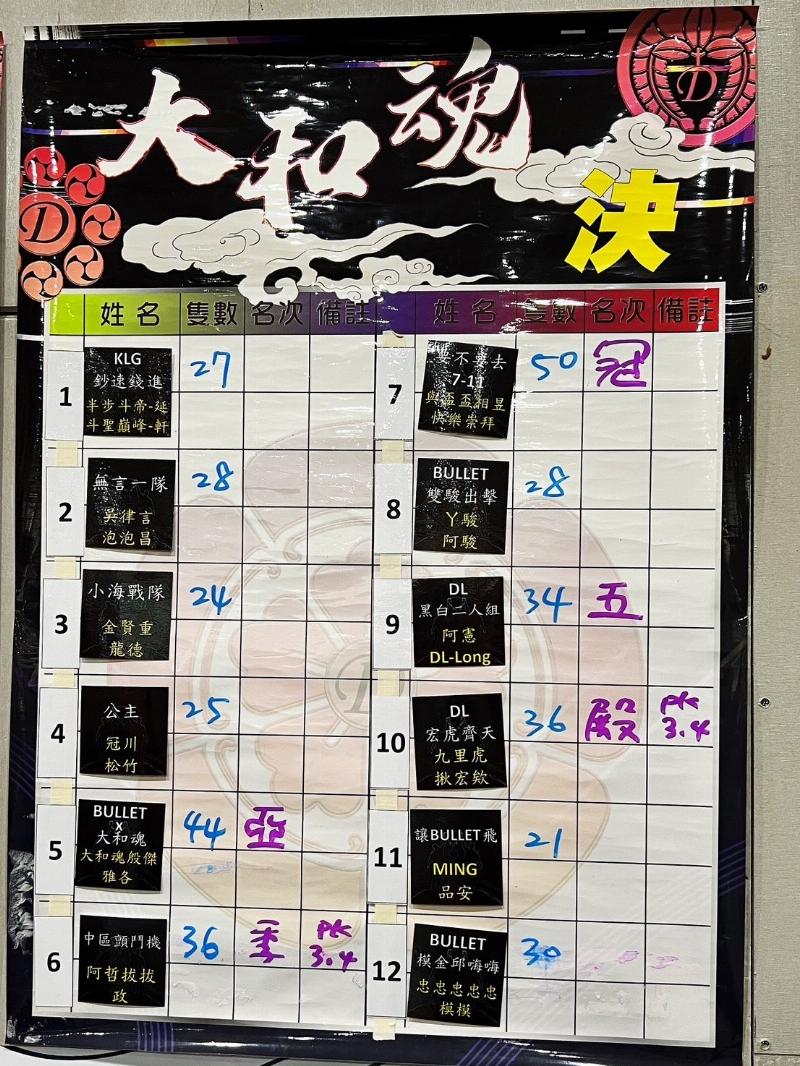 大和魂
決
D
D
姓名 隻數 名次 備註 姓名 隻數 名次 備註
1
KLG
鈔速錢進
半步斗帝-延
斗聖巔峰-軒
27
2
無言一隊
吳律言
泡泡昌
28
3
小海戰隊
金賢重
龍德
24
4
公主
冠川
松竹
25
5
BULLET
X
大和魂
大和魂殷傑
雅各
44 亞
6
中區顫鬥機
阿哲拔拔
政
36 季 PK
3.4
7
要不要去
7-11
與盃盃相昱
快樂崇拜
50 冠
8
BULLET
雙駿出擊
丫駿
阿駿
28
9
DL
黑白二人組
阿憲
DL-Long
34 五
10
DL
宏虎齊天
九里虎
揪宏欸
36 殿 PK
3.4
11
讓BULLET飛
MING
品安
21
12
BULLET
模金邱嗨嗨
忠忠忠忠忠
模模
30